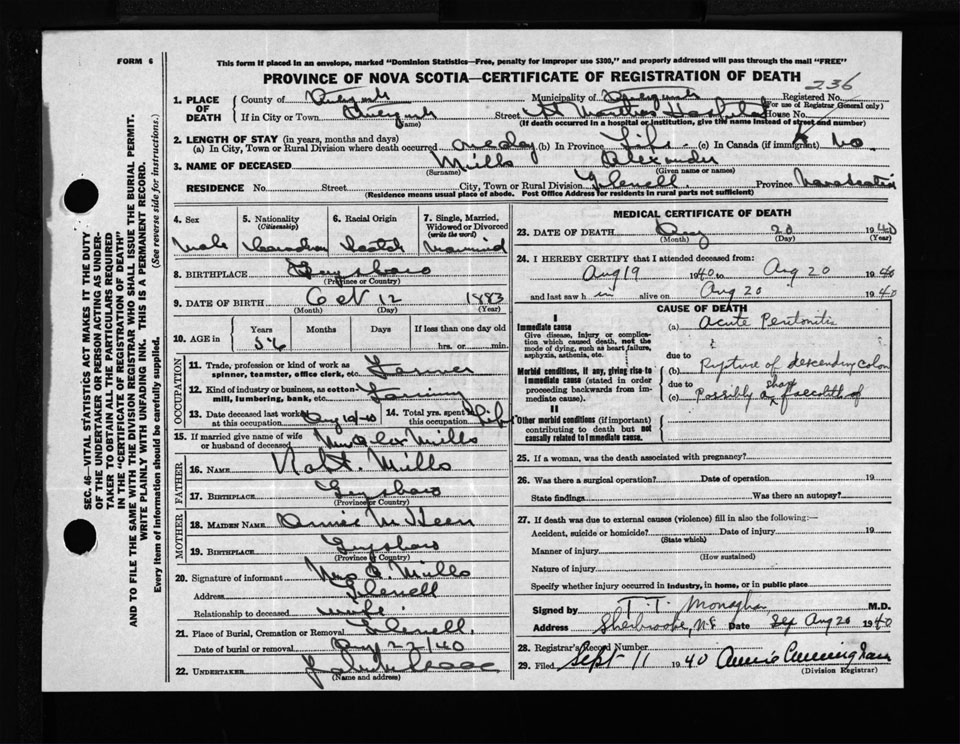 FORM 6
This form if placed in an envelope, marked "Dominion Statistics—Free, penalty for improper use $300," and properly addressed will pass through the mail "FREE"
PROVINCE OF NOVA SCOTIA—CERTIFICATE OF REGISTRATION OF DEATH
236
1. PLACE OF DEATH County of Municipality of Registered No. (For use of Registrar General only)
If in City or Town (Name) Street St Hospital House No.
(If death occurred in a hospital or institution, give the name instead of street and number)
2. LENGTH OF STAY (in years, months and days)
(a) In City, Town or Rural Division where death occurred one day (b) In Province Life (c) In Canada (if immigrant) No.
3. NAME OF DECEASED Mills Alexander
(Surname) (Given name or names)
RESIDENCE No. Street City, Town or Rural Division Glenelg Province Nova Scotia
(Residence means usual place of abode. Post Office Address for residents in rural parts not sufficient)
4. Sex Male
5. Nationality (Citizenship) Canadian
6. Racial Origin Scotch
7. Single, Married, Widowed or Divorced (write the word) Married
8. BIRTHPLACE Guysboro
(Province or Country)
9. DATE OF BIRTH Oct 12 1883
(Month) (Day) (Year)
10. AGE in Years Months Days If less than one day old
56 hrs. or min.
OCCUPATION
11. Trade, profession or kind of work as spinner, teamster, office clerk, etc. Farmer
12. Kind of industry or business, as cotton mill, lumbering, bank, etc. Farming
13. Date deceased last worked at this occupation Aug
14. Total yrs. spent in this occupation Life
15. If married give name of wife or husband of deceased Mrs Alex Mills
FATHER
16. NAME Robt. Mills
17. BIRTHPLACE Guysboro
(Province or Country)
MOTHER
18. MAIDEN NAME Annie
19. BIRTHPLACE Guysboro
(Province or Country)
20. Signature of informant Mrs A. Mills
Address Glenelg
Relationship to deceased wife.
21. Place of Burial, Cremation or Removal Glenelg.
Date of burial or removal Aug 22/40
22. UNDERTAKER John
(Name and address)
MEDICAL CERTIFICATE OF DEATH
23. DATE OF DEATH Aug 20 1940
(Month) (Day) (Year)
24. I HEREBY CERTIFY that I attended deceased from:
Aug 19 1940 to Aug 20 1940
and last saw h im alive on Aug 20 1940
CAUSE OF DEATH
I
Immediate cause
Give disease, injury or complication, which caused death, not the mode of dying, such as heart failure, asphyxia, asthenia, etc.
(a) Acute Peritonitis
due to
Morbid conditions, if any, giving rise to immediate cause (stated in order proceeding backwards from immediate cause).
(b) Rupture of descending colon
due to
(c) Possibly a sharp faecolith of
II
Other morbid conditions (if important) contributing to death but not causally related to immediate cause.
25. If a woman, was the death associated with pregnancy?
26. Was there a surgical operation? Date of operation 19
State findings Was there an autopsy?
27. If death was due to external causes (violence) fill in also the following:—
Accident, suicide or homicide? Date of injury 19
(State which)
Manner of injury
(How sustained)
Nature of injury
Specify whether injury occurred in industry, in home, or in public place
Signed by T. T. Monaghan M.D.
Address Sherbrooke, N.S Date Aug 20 1940
28. Registrar's Record Number
29. Filed Sept 11 1940 Annie Cunningham
(Division Registrar)
SEC. 46—VITAL STATISTICS ACT MAKES IT THE DUTY
OF THE UNDERTAKER OR PERSON ACTING AS UNDER-
TAKER TO OBTAIN ALL THE PARTICULARS REQUIRED
IN THE "CERTIFICATE OF REGISTRATION OF DEATH"
AND TO FILE THE SAME WITH THE DIVISION REGISTRAR WHO SHALL ISSUE THE BURIAL PERMIT.
WRITE PLAINLY WITH UNFADING INK. THIS IS A PERMANENT RECORD.
Every item of information should be carefully supplied. (See reverse side for instructions.)